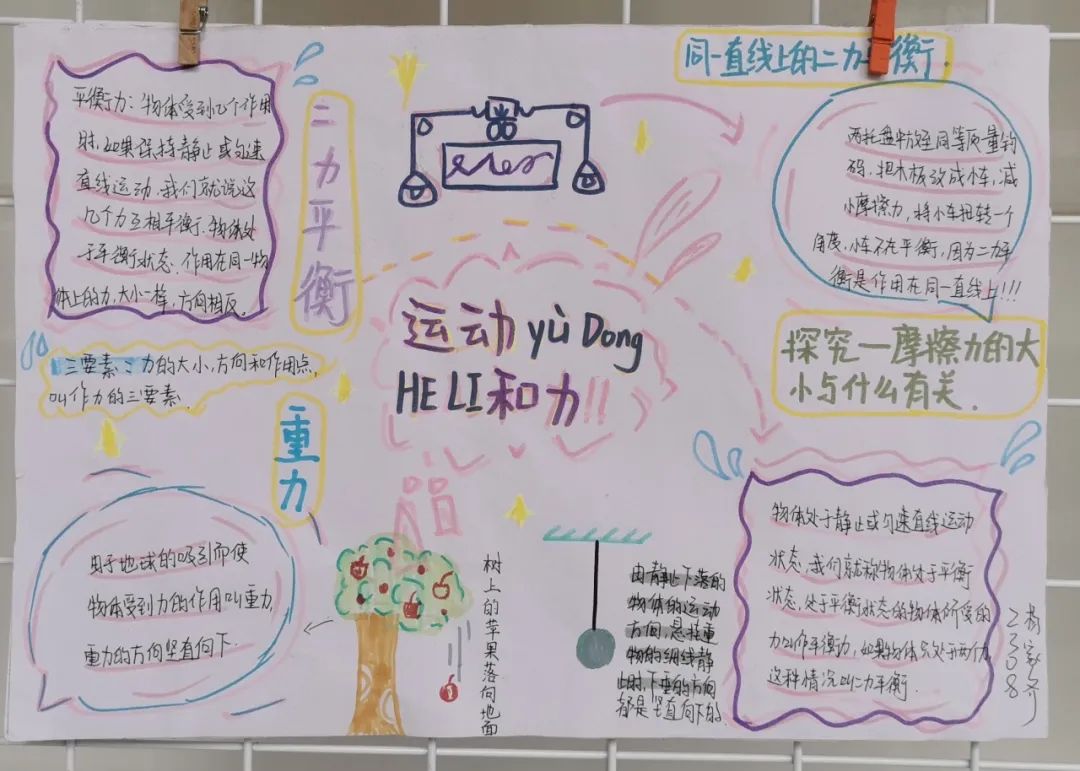 同一直线上的二力平衡.
平衡力：物体受到几个作用
时,如果保持静止或匀速
直线运动,我们就说这
几个力互相平衡.物体处
于平衡状态.作用在同一物
体上的力,大小一样,方向相反.
二力平衡
两托盘放同等质量钩
码,把木板改成小车,减
小摩擦力,将小车扭转一个
角度,小车不在平衡,因为二力平
衡是作用在同一直线上!!!
运动yǔ Dong
HE LI和力!!
探究一摩擦力的大
小与什么有关.
三要素：力的大小,方向和作用点,
叫作力的三要素.
重力
由于地球的吸引而使
物体受到力的作用叫重力,
重力的方向竖直向下.
树上的苹果落向地面
由静止下落的
物体的运动
方向,悬挂重
物的细线静
止时,下垂的方向
都是竖直向下的.
物体处于静止或匀速直线运动
状态,我们就称物体处于平衡
状态,处于平衡状态的物体所受的
力叫作平衡力,如果物体只处于两个力,
这种情况叫二力平衡.
2308